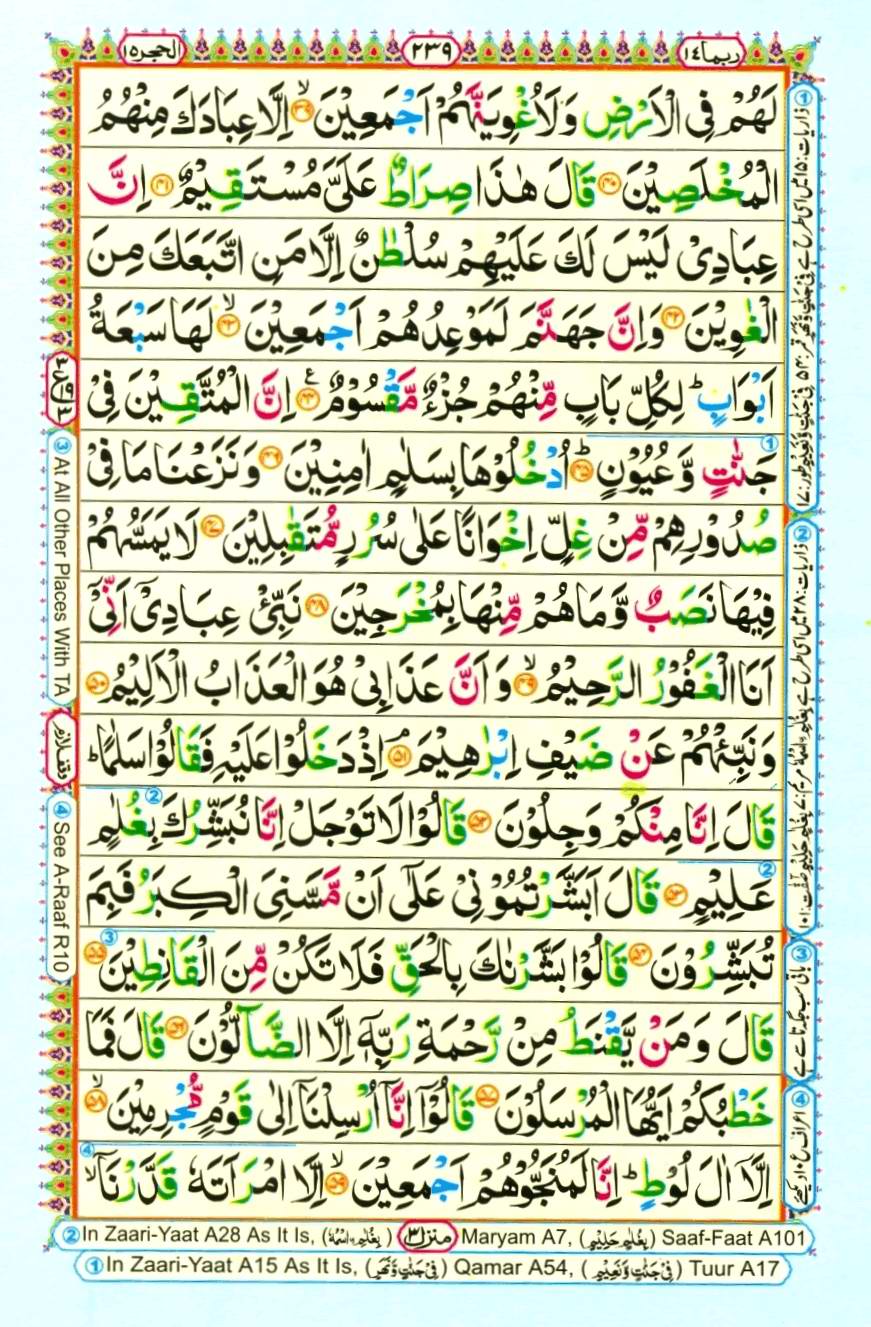 ربما ١٤
٢٣٩
الحجر ١٥
لَهُمْ فِى الْاَرْضِ وَلَاُغْوِيَنَّهُمْ اَجْمَعِيْنَ ۙ﴿۳۹﴾ اِلَّا عِبَادَكَ مِنْهُمُ
الْمُخْلَصِيْنَ ﴿۴۰﴾ قَالَ هٰذَا صِرَاطٌ عَلَىَّ مُسْتَقِيْمٌ ﴿۴۱﴾ اِنَّ
عِبَادِىْ لَيْسَ لَكَ عَلَيْهِمْ سُلْطٰنٌ اِلَّا مَنِ اتَّبَعَكَ مِنَ
الْغٰوِيْنَ ﴿۴۲﴾ وَاِنَّ جَهَنَّمَ لَمَوْعِدُهُمْ اَجْمَعِيْنَ ۙ﴿۴۳﴾ لَهَا سَبْعَةُ
اَبْوَابٍ ؕ لِكُلِّ بَابٍ مِّنْهُمْ جُزْءٌ مَّقْسُوْمٌ ﴿۴۴﴾ ع اِنَّ الْمُتَّقِيْنَ فِىْ
جَنّٰتٍ وَّعُيُوْنٍ ؕ﴿۴۵﴾ اُدْخُلُوْهَا بِسَلٰمٍ اٰمِنِيْنَ ﴿۴۶﴾ وَنَزَعْنَا مَا فِىْ
صُدُوْرِهِمْ مِّنْ غِلٍّ اِخْوَانًا عَلٰى سُرُرٍ مُّتَقٰبِلِيْنَ ﴿۴۷﴾ لَا يَمَسُّهُمْ
فِيْهَا نَصَبٌ وَّمَا هُمْ مِّنْهَا بِمُخْرَجِيْنَ ﴿۴۸﴾ نَبِّئْ عِبَادِىْۤ اَنِّىْۤ
اَنَا الْغَفُوْرُ الرَّحِيْمُ ۙ﴿۴۹﴾ وَاَنَّ عَذَابِىْ هُوَ الْعَذَابُ الْاَلِيْمُ ﴿۵۰﴾
وَنَبِّئْهُمْ عَنْ ضَيْفِ اِبْرٰهِيْمَ ۘ﴿۵۱﴾ اِذْ دَخَلُوْا عَلَيْهِ فَقَالُوْا سَلٰمًا ؕ
قَالَ اِنَّا مِنْكُمْ وَجِلُوْنَ ﴿۵۲﴾ قَالُوْا لَا تَوْجَلْ اِنَّا نُبَشِّرُكَ بِغُلٰمٍ
عَلِيْمٍ ﴿۵۳﴾ قَالَ اَبَشَّرْتُمُوْنِىْ عَلٰٓى اَنْ مَّسَّنِىَ الْكِبَرُ فَبِمَ
تُبَشِّرُوْنَ ﴿۵۴﴾ قَالُوْا بَشَّرْنٰكَ بِالْحَقِّ فَلَا تَكُنْ مِّنَ الْقَانِطِيْنَ ﴿۵۵﴾
قَالَ وَمَنْ يَّقْنَطُ مِنْ رَّحْمَةِ رَبِّهٖۤ اِلَّا الضَّآلُّوْنَ ﴿۵۶﴾ قَالَ فَمَا
خَطْبُكُمْ اَيُّهَا الْمُرْسَلُوْنَ ﴿۵۷﴾ قَالُوْۤا اِنَّاۤ اُرْسِلْنَاۤ اِلٰى قَوْمٍ مُّجْرِمِيْنَ ۙ﴿۵۸﴾
اِلَّاۤ اٰلَ لُوْطٍ ؕ اِنَّا لَمُنَجُّوْهُمْ اَجْمَعِيْنَ ۙ﴿۵۹﴾ اِلَّا امْرَاَتَهٗ قَدَّرْنَاۤ ۙ
③ At All Other Places With TA
وقف لازم
④ See A-Raaf R10
③ باقی سب جگہ تا سے ہے
④ اعراف ع ۱۰ دیکھئے
② In Zaari-Yaat A28 As It Is, (بِغُلٰمِ ِۨاسْمُهٗ) منزل ٣ Maryam A7, (بِغُلٰمٍ حَلِيْمٍ) Saaf-Faat A101
① In Zaari-Yaat A15 As It Is, (فِىْ جَنّٰتٍ وَّنَهَرٍ) Qamar A54, (فِىْ جَنّٰتٍ وَّنَعِيْمٍ) Tuur A17